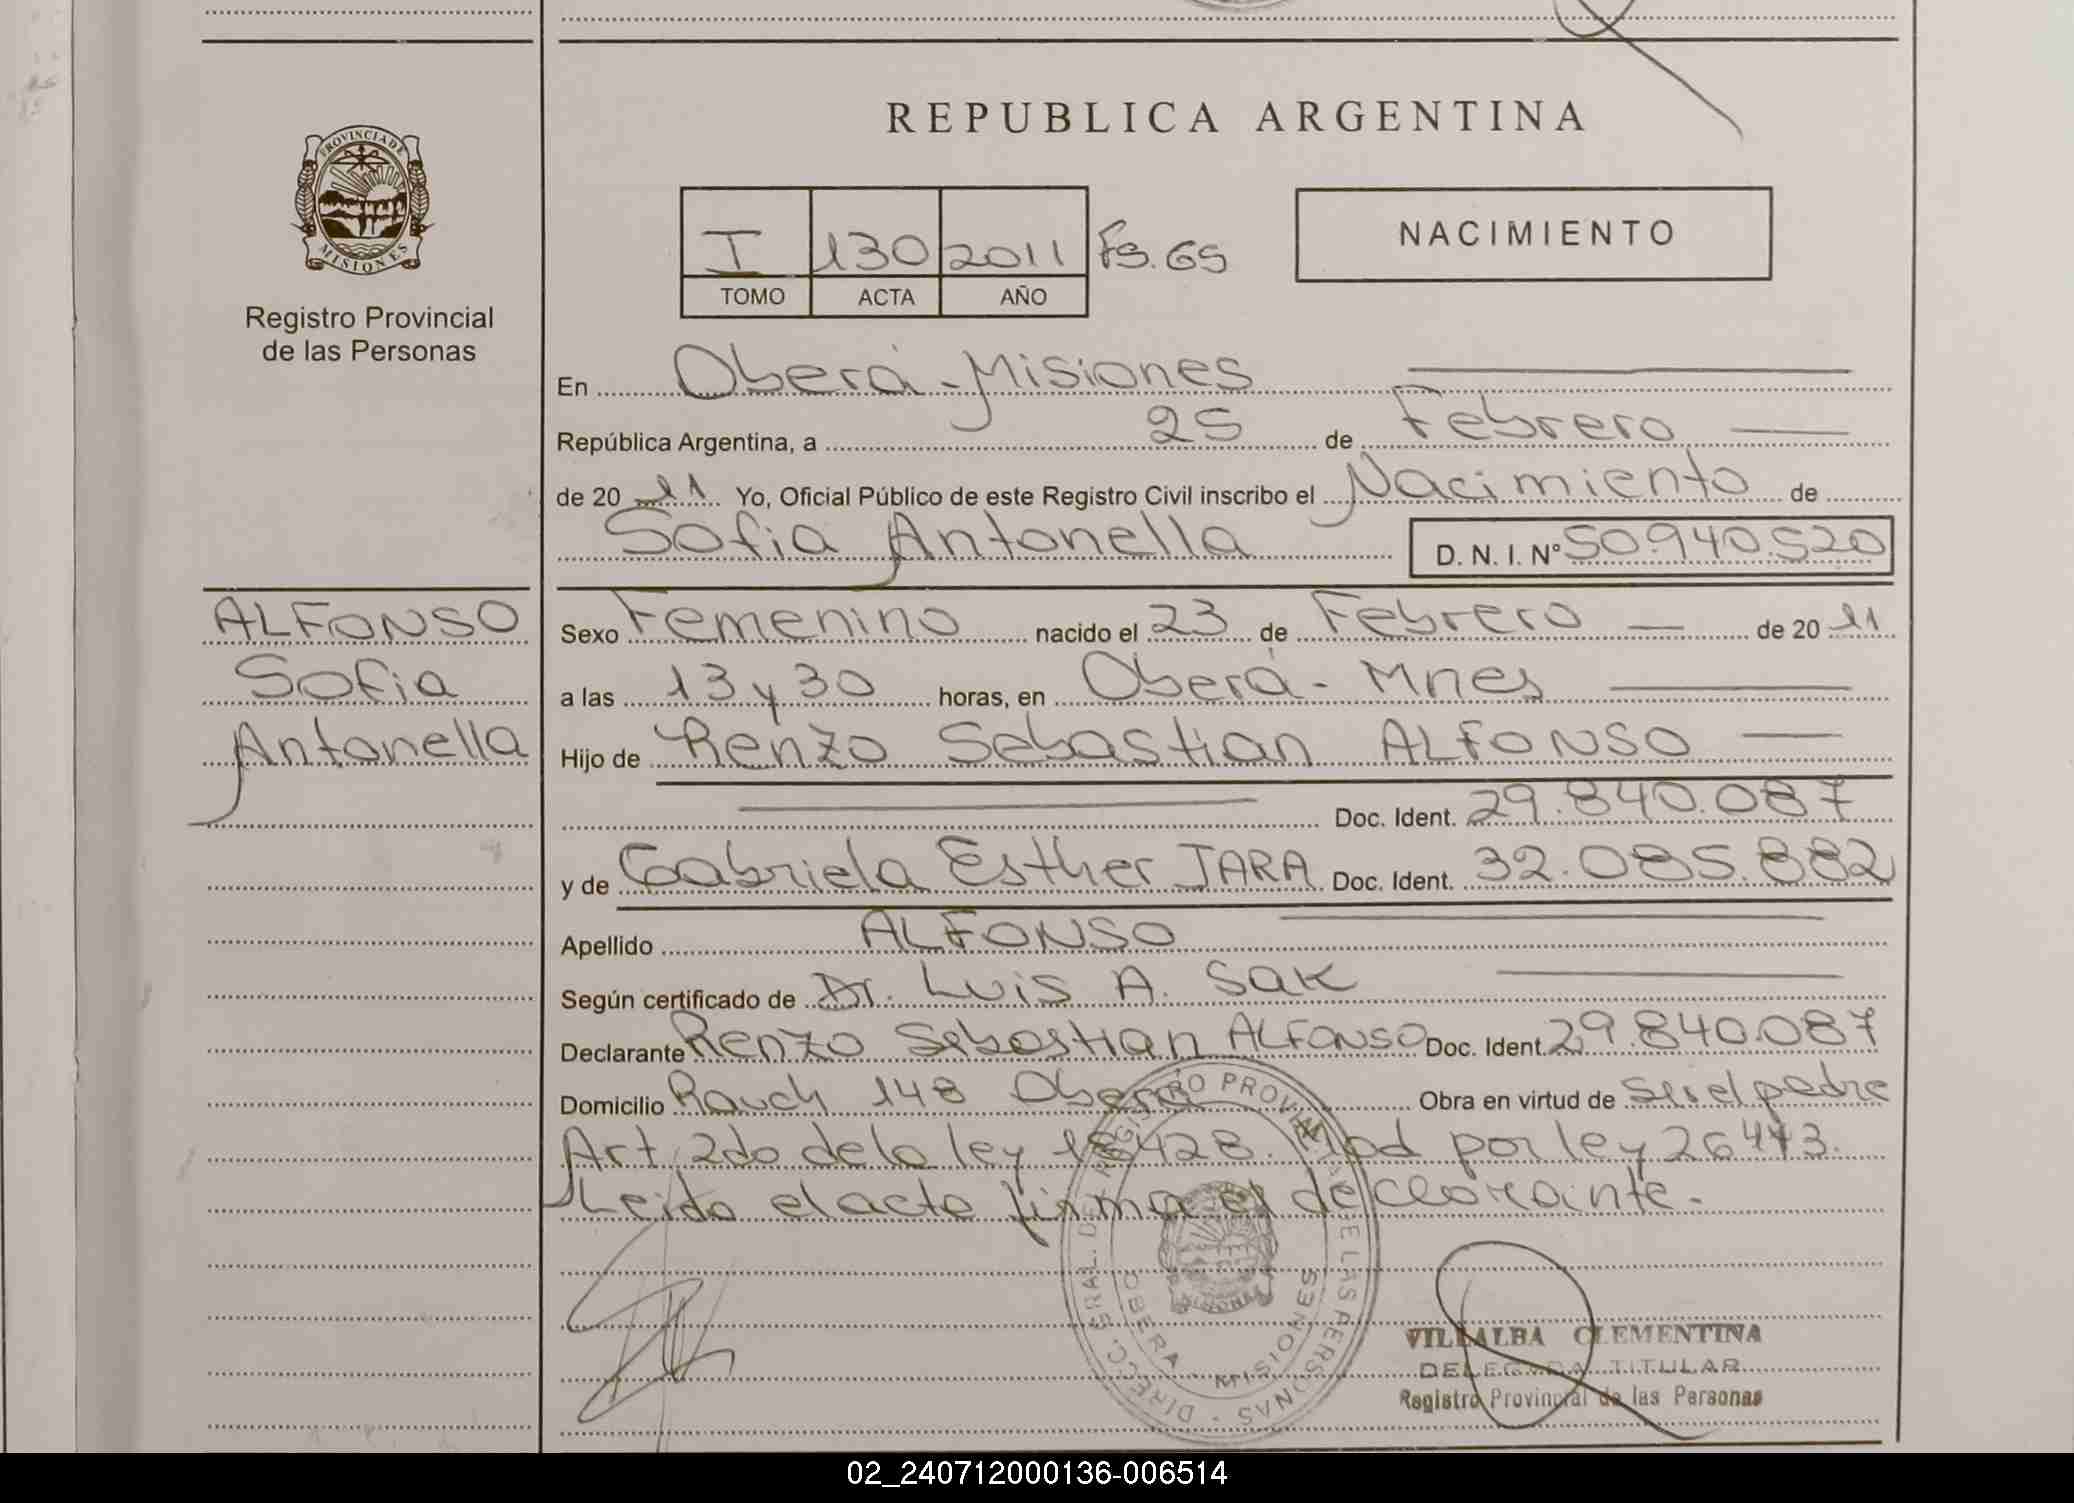 REPUBLICA ARGENTINA
PROVINCIA DE
MISIONES
Registro Provincial
de las Personas
I 130 2011 Fs. 65
TOMO ACTA AÑO
NACIMIENTO
En Oberá - Misiones
República Argentina, a 25 de Febrero
de 20 11 Yo, Oficial Público de este Registro Civil inscribo el Nacimiento de
Sofia Antonella D. N. I. N° 50.940.520
ALFONSO
Sofia
Antonella
Sexo Femenino nacido el 23 de Febrero de 20 11
a las 13 y 30 horas, en Oberá - Mnes
Hijo de Renzo Sebastian ALFONSO
Doc. Ident. 29.840.087
y de Gabriela Esther JARA Doc. Ident. 32.085.882
Apellido ALFONSO
Según certificado de Dr. Luis A. Sak
Declarante Renzo Sebastian ALFONSO Doc. Ident. 29.840.087
Domicilio Rauch 148 Oberá Obra en virtud de ser el padre
Art. 2do de la ley 18428. Mod por ley 26413.
Leido el acta firma el declarante.
DIRECC. GRAL. DE REGISTRO PROVINCIAL DE LAS PERSONAS
OBERA - MISIONES
VILLALBA CLEMENTINA
DELEGADA TITULAR
Registro Provincial de las Personas
02_240712000136-006514